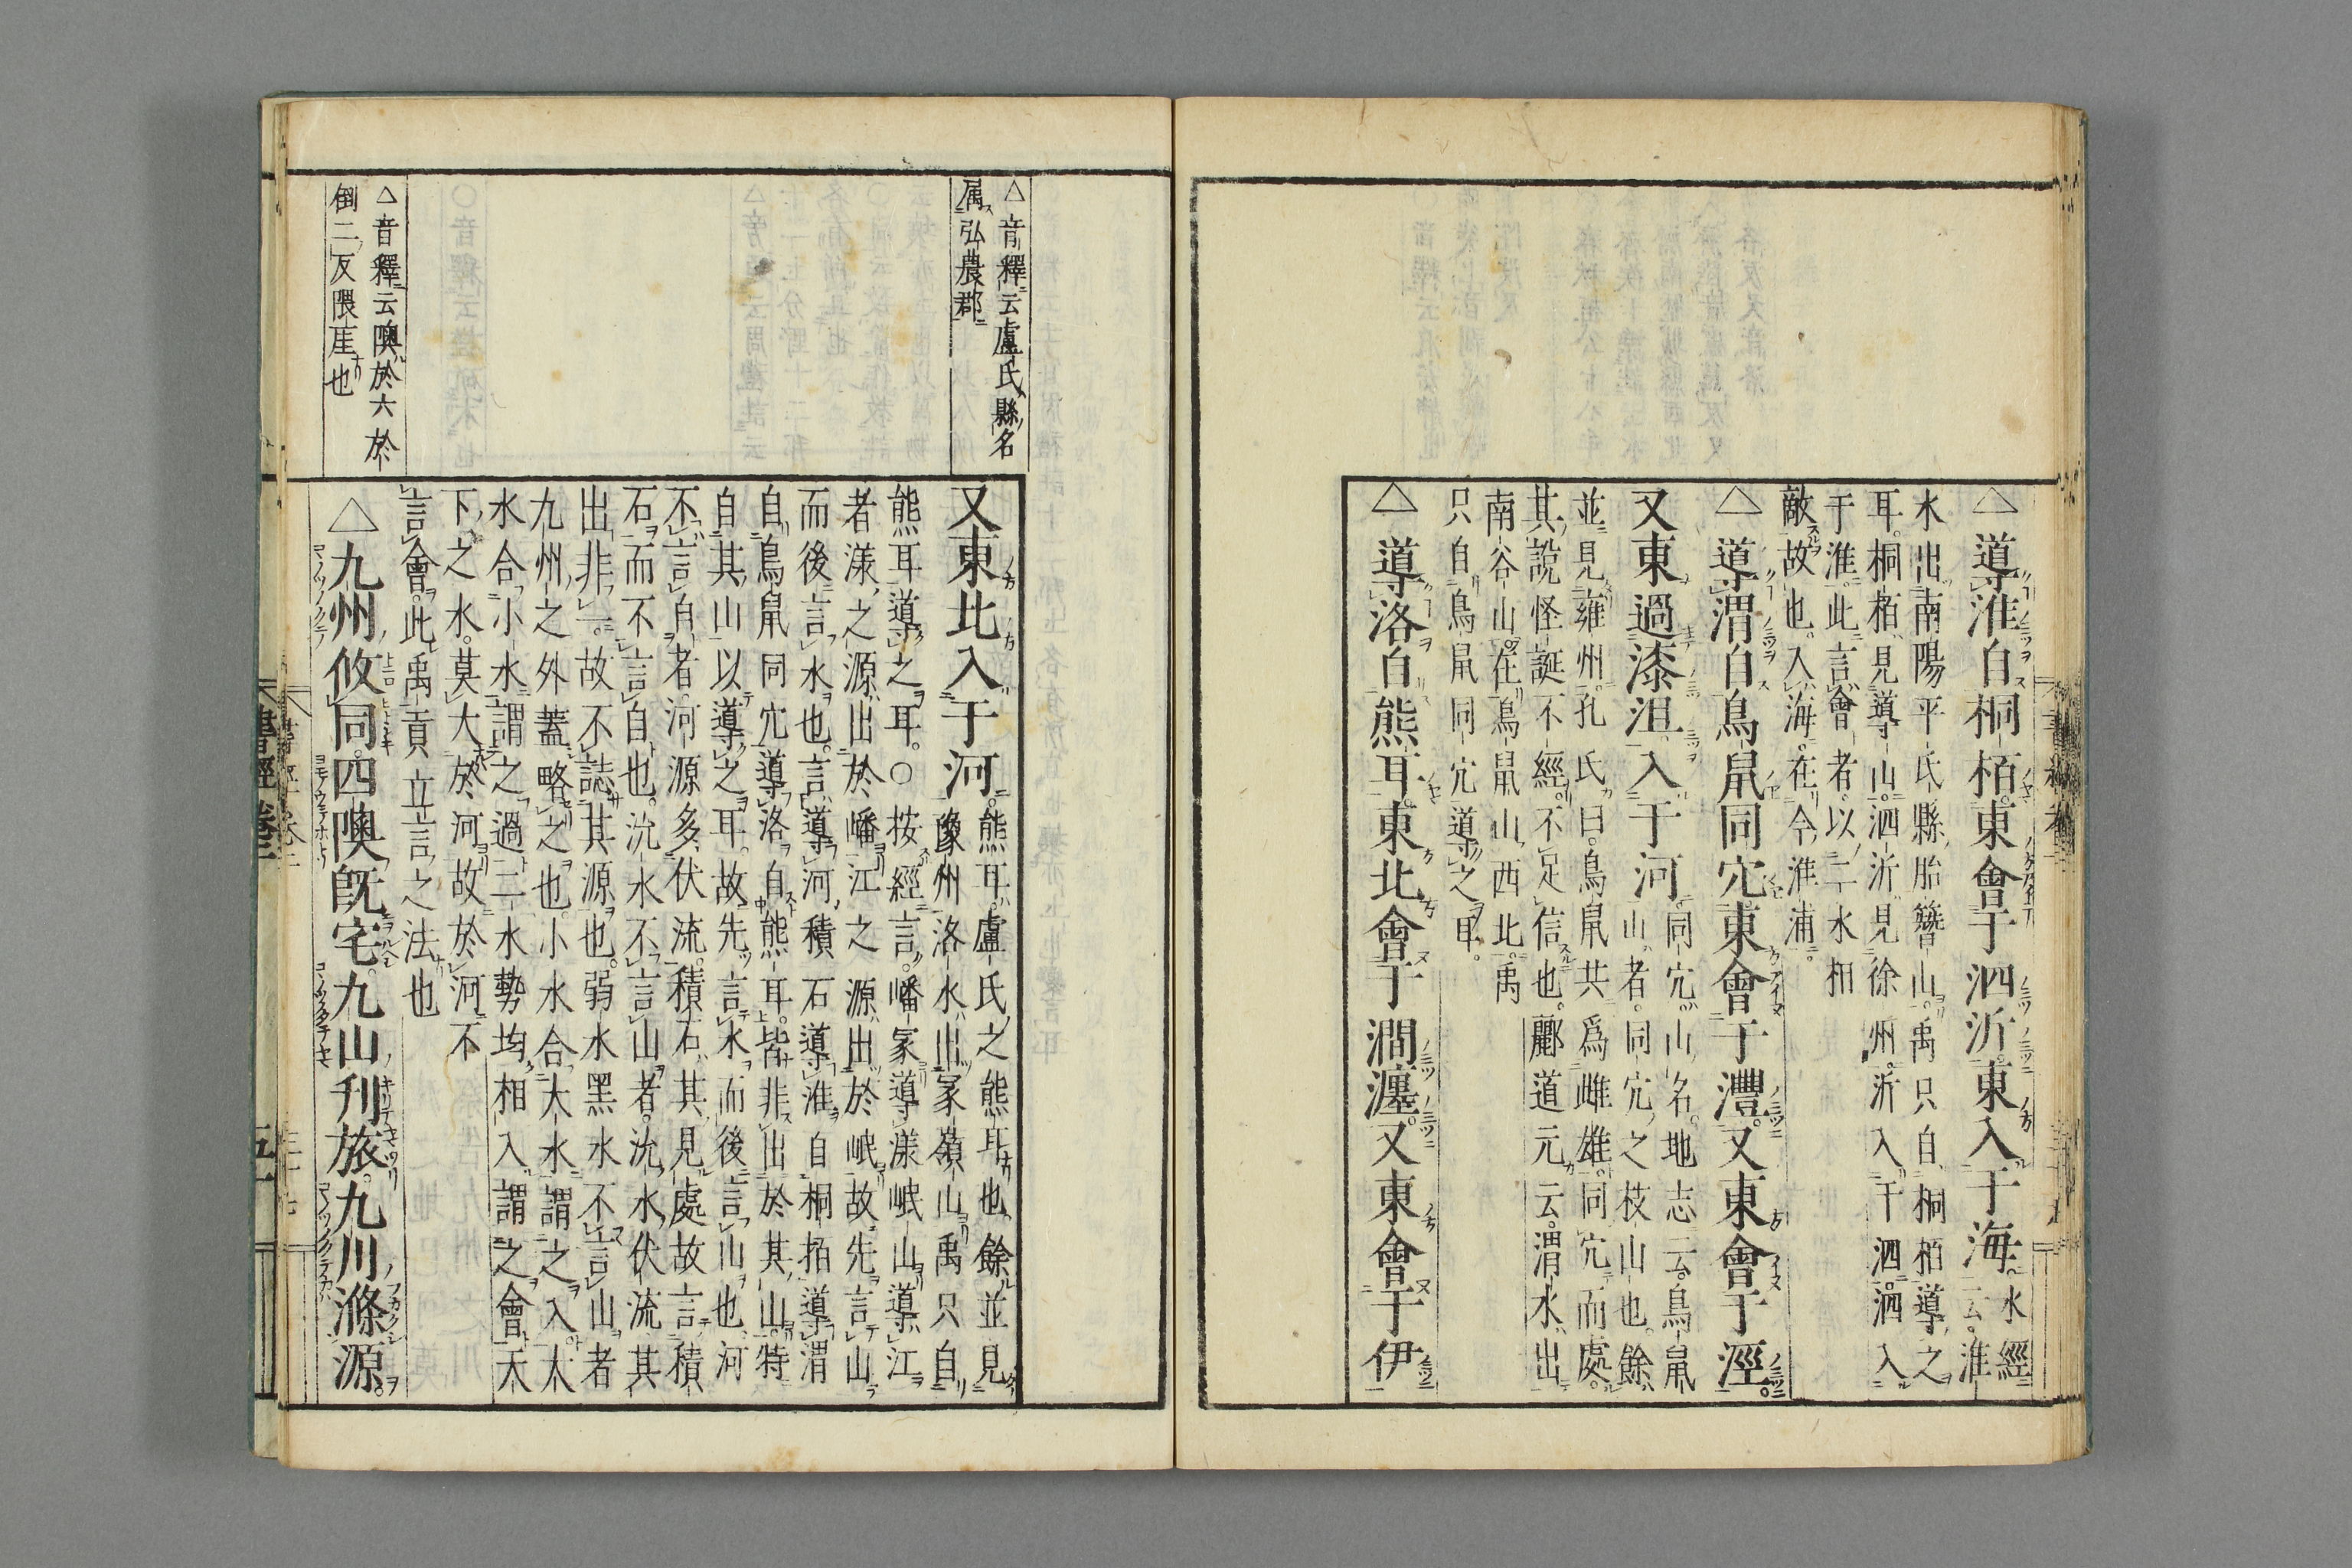 △導淮自桐栢東會于泗沂東入于海水經云淮
水出南陽平氏縣胎簪山禹只自桐栢導之
耳桐栢見導山泗沂見徐州沂入于泗泗入
于淮此言會者以二水相
敵故也入海在今淮浦
△導渭自鳥鼠同穴東會于灃又東會于涇
又東過漆沮入于河同穴山名地志云鳥鼠山者同穴之枝山也餘
並見雍州孔氏曰鳥鼠共爲雌雄同穴而處
其說怪誕不經不足信也酈道元云渭水出
南谷山在鳥鼠山西北禹
只自鳥鼠同穴導之耳
△導洛自熊耳東北會于澗瀍又東會于伊
△音釋云盧氏縣名
屬弘農郡
△音釋云隩於六於
倒二反隈厓也
又東北入于河熊耳盧氏之熊耳也餘並見豫州洛水出冢嶺山禹只自
熊耳導之耳○按經言嶓冢導漾岷山導江
者漾之源出於嶓江之源出於岷故先言山
而後言水也言導河積石導淮自桐栢導渭
自鳥鼠同穴導洛自熊耳皆非出於其山特
自其山以導之耳故先言水而後言山也河
不言自者河源多伏流積石其見處故言積
石而不言自也沇水不言山者沇水伏流其
出非一故不誌其源也弱水黑水不言山者
九州之外蓋略之也小水合大水謂之入大
水合小水謂之過二水勢均相入謂之會天
下之水莫大於河故於河不
言會此禹貢立言之法也
△九州攸同四隩旣宅九山刊旅九川滌源
書經卷二